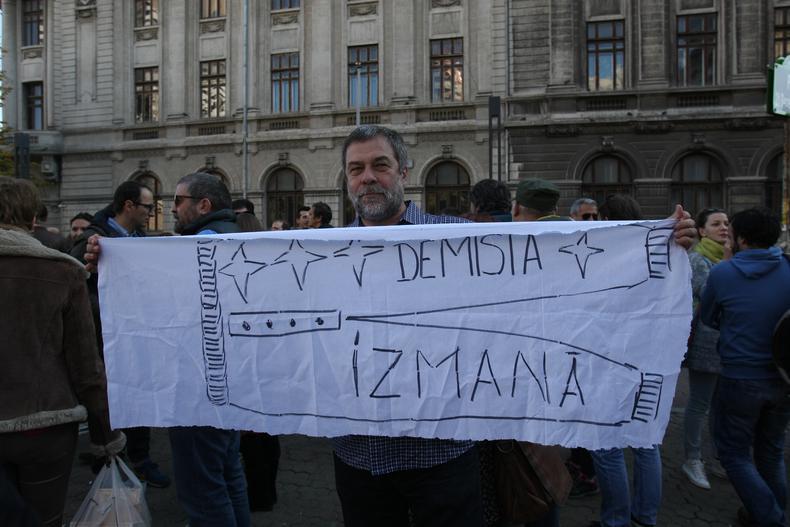 DEMISIA
İZMANĂ